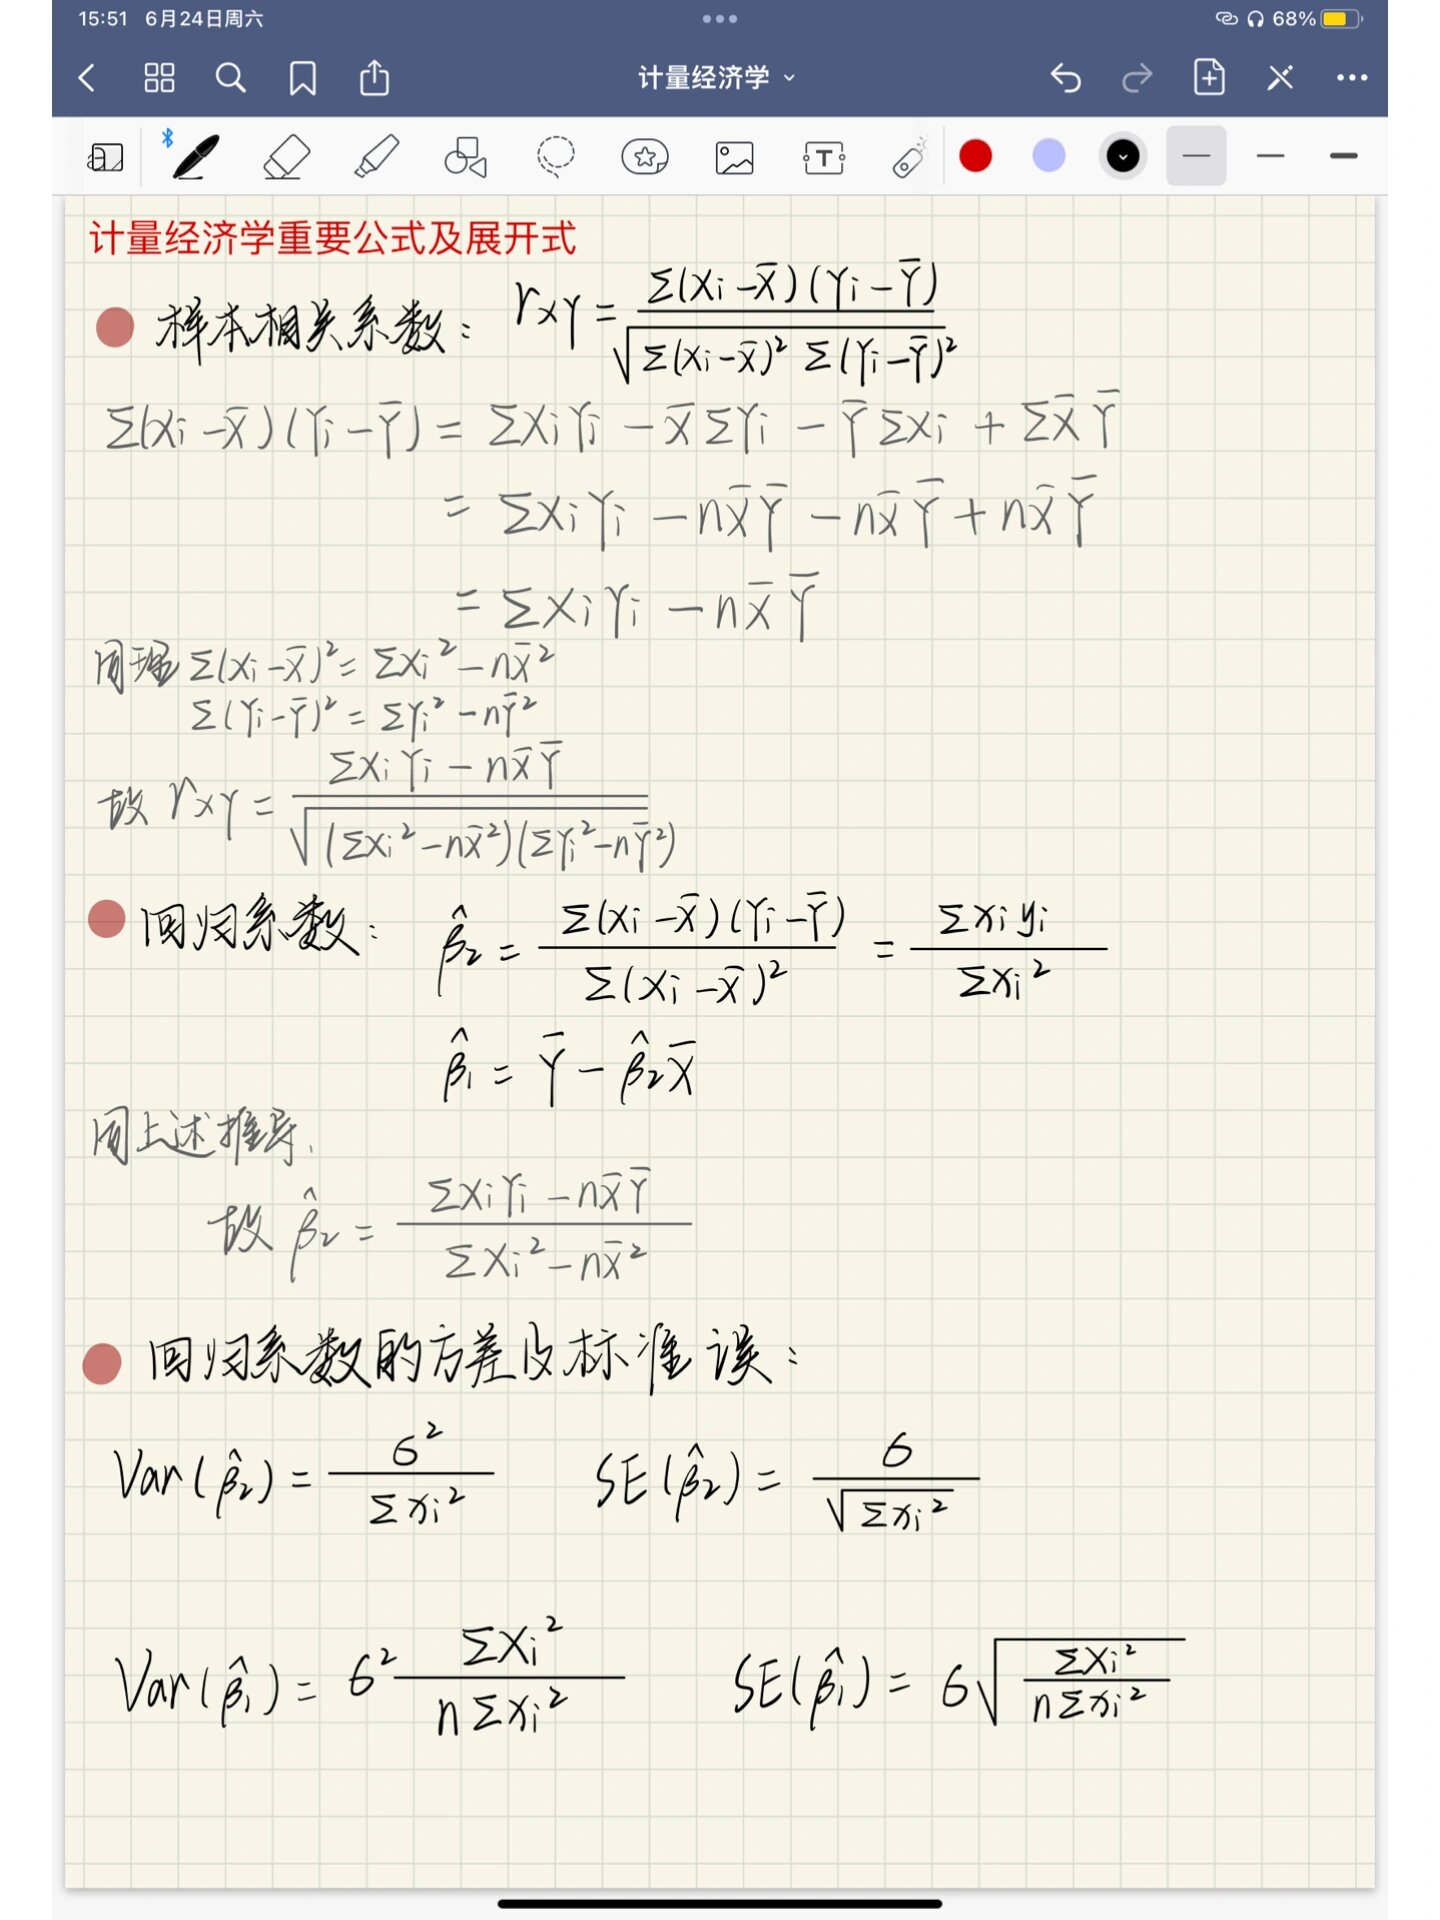 15:51 6月24日周六
68%
计量经济学
T
计量经济学重要公式及展开式
样本相关系数: rXY = Σ(Xi-X̄)(Yi-Ȳ) / √(Σ(Xi-X̄)² Σ(Yi-Ȳ)²)
Σ(Xi-X̄)(Yi-Ȳ) = ΣXiYi - X̄ΣYi - ȲΣXi + ΣX̄Ȳ
= ΣXiYi - nX̄Ȳ - nX̄Ȳ + nX̄Ȳ
= ΣXiYi - nX̄Ȳ
同理 Σ(Xi-X̄)² = ΣXi² - nX̄²
Σ(Yi-Ȳ)² = ΣYi² - nȲ²
故 rXY = (ΣXiYi - nX̄Ȳ) / √((ΣXi²-nX̄²)(ΣYi²-nȲ²))
回归系数: β̂2 = Σ(Xi-X̄)(Yi-Ȳ) / Σ(Xi-X̄)² = Σxiyi / Σxi²
β̂1 = Ȳ - β̂2X̄
同上述推导,
故 β̂2 = (ΣXiYi - nX̄Ȳ) / (ΣXi² - nX̄²)
回归系数的方差及标准误:
Var(β̂2) = σ² / Σxi² SE(β̂2) = σ / √(Σxi²)
Var(β̂1) = σ² ΣXi² / (nΣxi²) SE(β̂1) = σ√(ΣXi² / (nΣxi²))